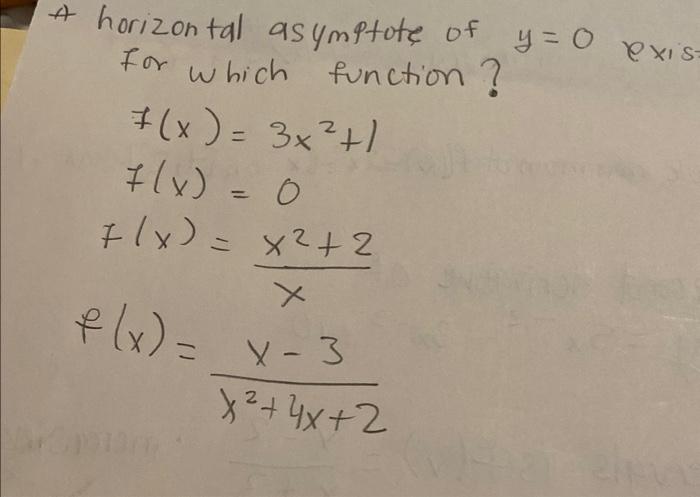 A horizontal asymptote of y = 0 exis
for which function?
f(x) = 3x²+1
f(x) = 0
f(x) = x²+2
x
f(x) = x - 3
x²+4x+2